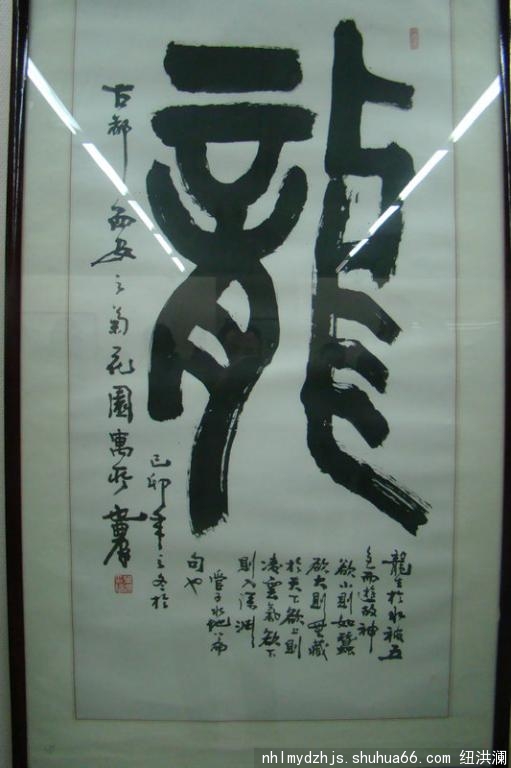 龍
龍生於水被五
色而遊故神
欲小則如蠶
欲大則藏
於天下欲上則
凌雲氣欲下
則入深淵
管子水地篇
句也
己卯年之冬於
古都西安之菊花園寓所
nhlmydzhjs.shuhua66.com 纽洪澜